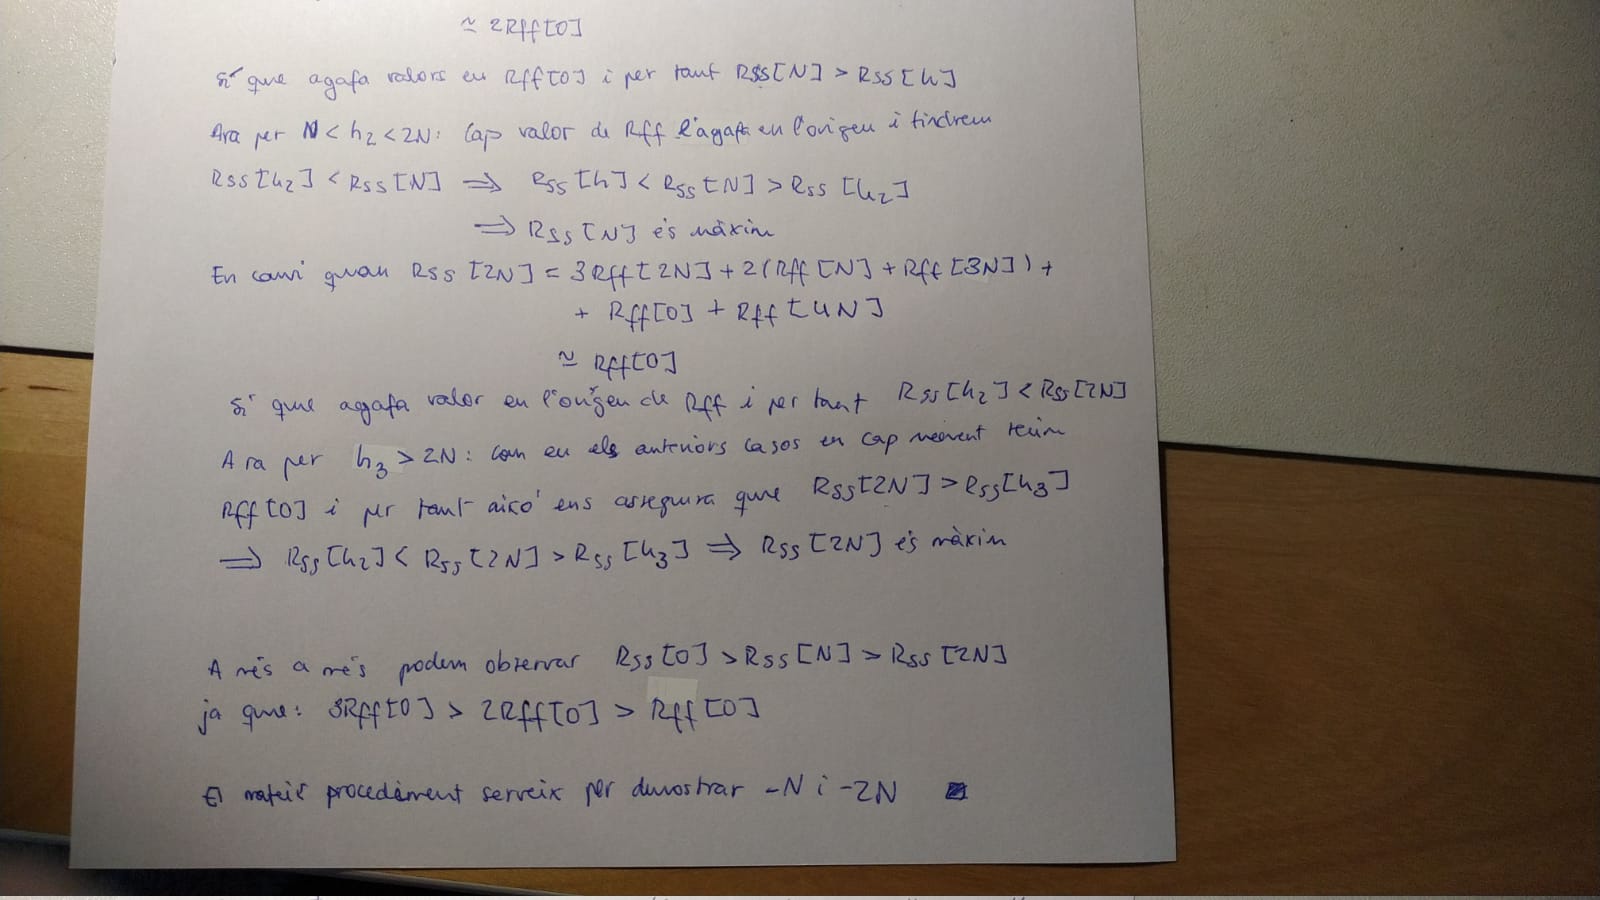 ≃ 2Rff[0]
Sí que agafa valors en Rff[0] i per tant RSS[N] > RSS[h]
Ara per N < h2 < 2N: Cap valor de Rff l'agafa en l'origen i tindrem
RSS[h2] < RSS[N] ⇒ RSS[h] < RSS[N] > RSS[h2]
⇒ RSS[N] és màxim
En canvi quan RSS[2N] = 3Rff[2N] + 2(Rff[N] + Rff[3N]) +
+ Rff[0] + Rff[4N]
≃ Rff[0]
Sí que agafa valor en l'origen de Rff i per tant RSS[h2] < RSS[2N]
Ara per h3 > 2N: com en els anteriors casos en cap moment tenim
Rff[0] i per tant aixó ens assegura que RSS[2N] > RSS[h3]
⇒ RSS[h2] < RSS[2N] > RSS[h3] ⇒ RSS[2N] és màxim
A més a més podem observar RSS[0] > RSS[N] > RSS[2N]
ja que: 3Rff[0] > 2Rff[0] > Rff[0]
El mateix procedèment serveix per demostrar -N i -2N